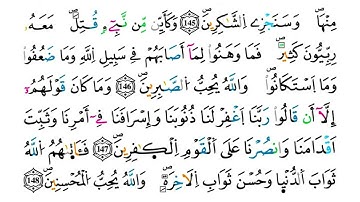 مِنْهَا ۚ وَسَنَجْزِے اِ۬لشَّٰكِرِينَۖ 145 وَكَأَيِّن مِّن نَّبِےٓءٖ قُتِلَ مَعَهُۥ
رِبِّيُّونَ كَثِيرٞ فَمَا وَهَنُواْ لِمَآ أَصَابَهُمْ فِے سَبِيلِ اِ۬للَّهِ وَمَا ضَعُفُواْ
وَمَا اَ۪سْتَكَانُواْۖ وَاللَّهُ يُحِبُّ اُ۬لصَّٰبِرِينَۖ 146 وَمَا كَانَ قَوْلَهُمُۥٓ
إِلَّآ أَن قَالُواْ رَبَّنَا اَ۪غْفِرْ لَنَا ذُنُوبَنَا وَإِسْرَافَنَا فِےٓ أَمْرِنَا وَثَبِّتَ
اَقْدَامَنَا وَانصُرْنَا عَلَى اَ۬لْقَوْمِ اِ۬لْكٰ۪فِرِينَۖ 147 فَـَٔات۪يٰهُمُ اُ۬للَّهُ
ثَوَابَ اَ۬لدُّنْي۪ا وَحُسْنَ ثَوَابِ اِ۬لَاخِرَةِۖ وَاللَّهُ يُحِبُّ اُ۬لْمُحْسِنِينَۖ 148